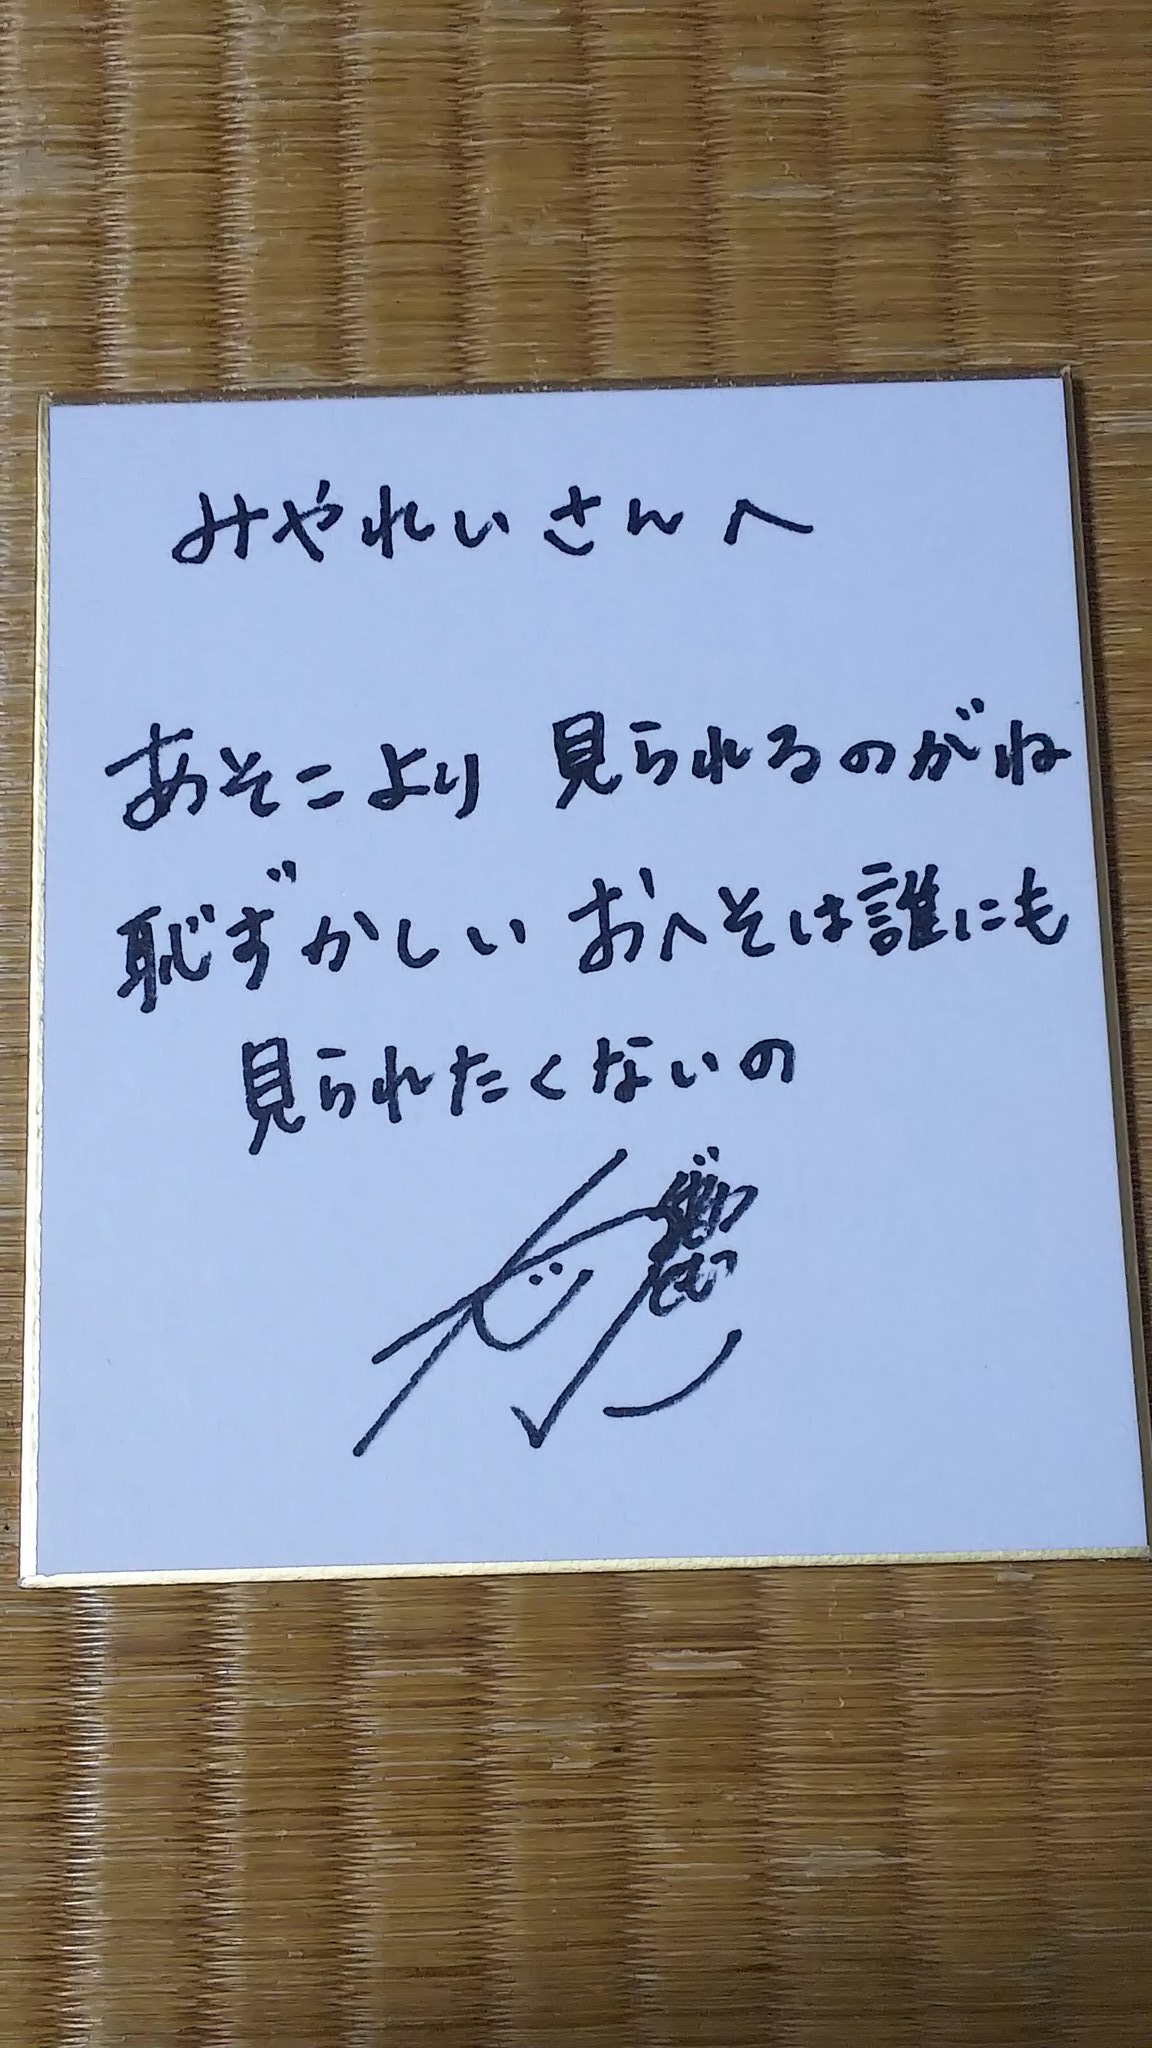 みやれいさんへ
あそこより 見られるのがね
恥ずかしい おへそは誰にも
見られたくないの